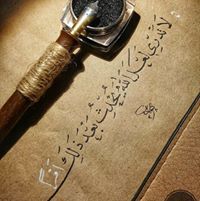 لَا تَدْرِي لَعَلَّ اللَّهَ يُحْدِثُ بَعْدَ ذَٰلِكَ أَمْرًا